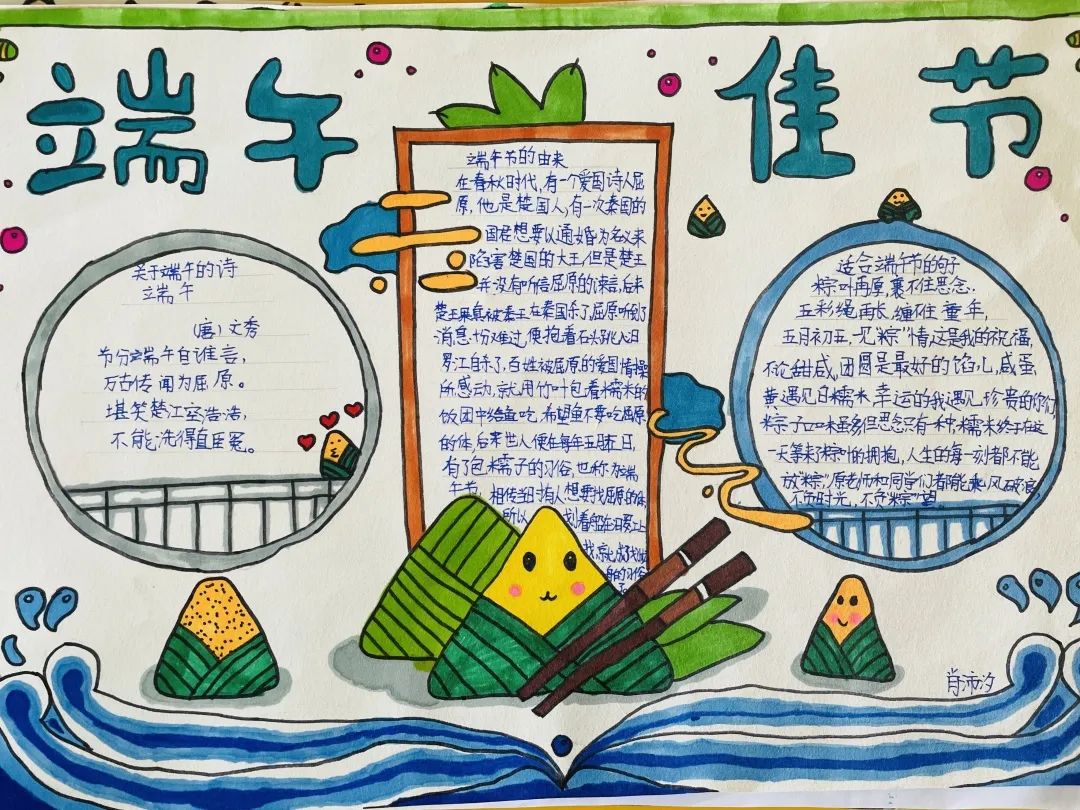 端午佳节
关于端午的诗
端午
(唐)文秀
节分端午自谁言,
万古传闻为屈原。
堪笑楚江空浩浩,
不能洗得直臣冤。
端午节的由来
在春秋时代,有一个爱国诗人屈
原,他是楚国人,有一次秦国的
国君想要以通婚为名义来
陷害楚国的大王,但是楚王
并没有听信屈原的谏言,后来
楚王果真被秦王在秦国杀了屈原听到了
消息十分难过,便抱着石头跳入汨
罗江自杀了,百姓被屈原的爱国情操
所感动,就用竹叶包着糯米的
饭团中给鱼吃,希望鱼不要吃屈原
的体,后来世人便在每年五月五日,
有了包糯子的习俗,也称为端
午节,相传当时有人想要找屈原的
所以 划着船在
就成了
的习俗
适合端午节的句子
粽叶再厚,裹不住思念.
五彩绳再长,缠不住童年,
五月初五,一见“粽”情这是我的祝福,
不论甜咸,团圆是最好的馅儿,咸蛋
黄遇见白糯米,幸运的我遇见珍贵的你们
粽子口味虽多但思念只有一种,糯米终于在这
一天等来了粽叶的拥抱,人生的每一刻都不能
放“粽”,原老师和同学们都能乘风破浪,
不负时光,不负“粽”望。
肖沛汐